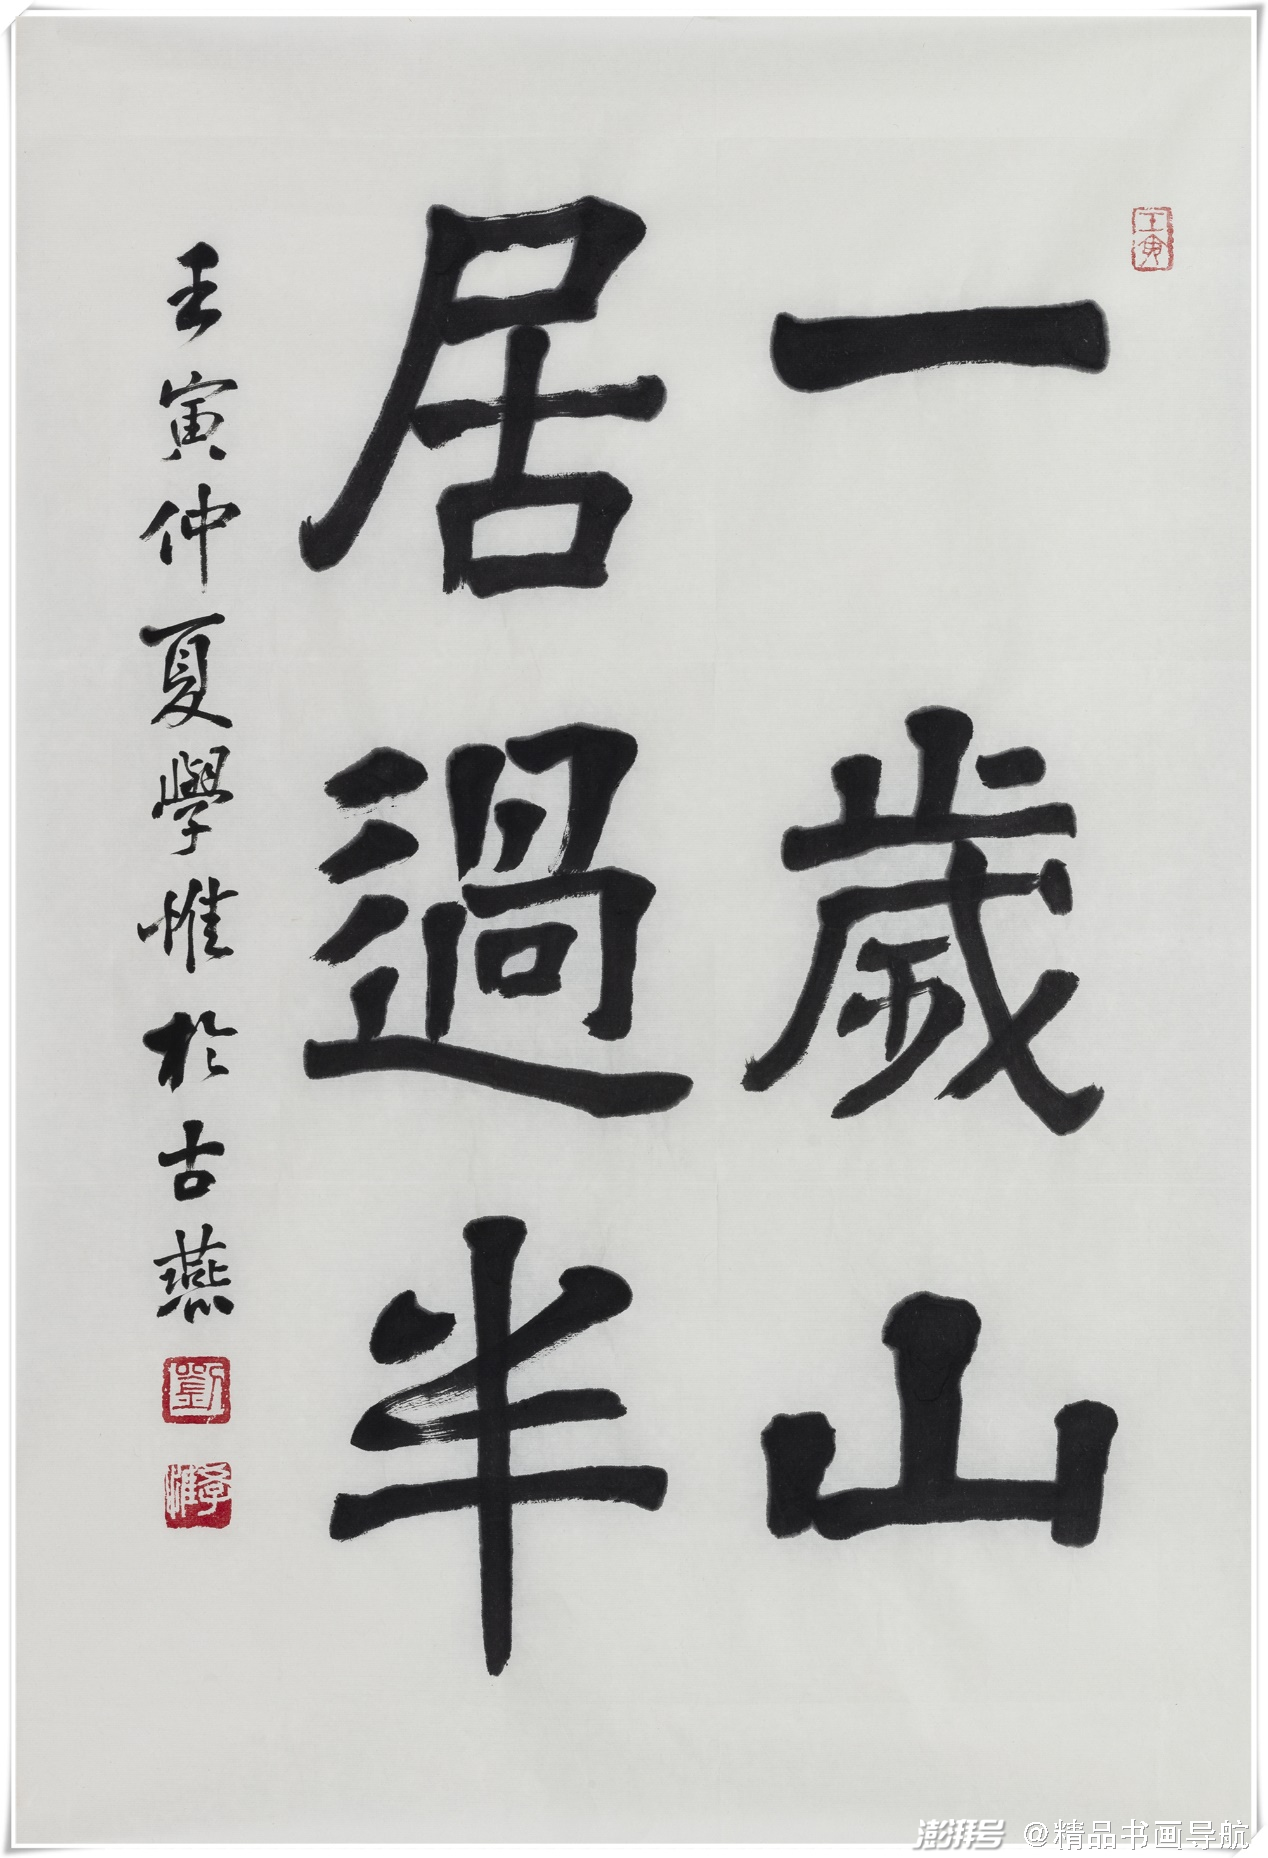 壬寅
一歲山
居過半
壬寅仲夏學惟於古燕
劉
學惟
澎湃号 @精品书画导航